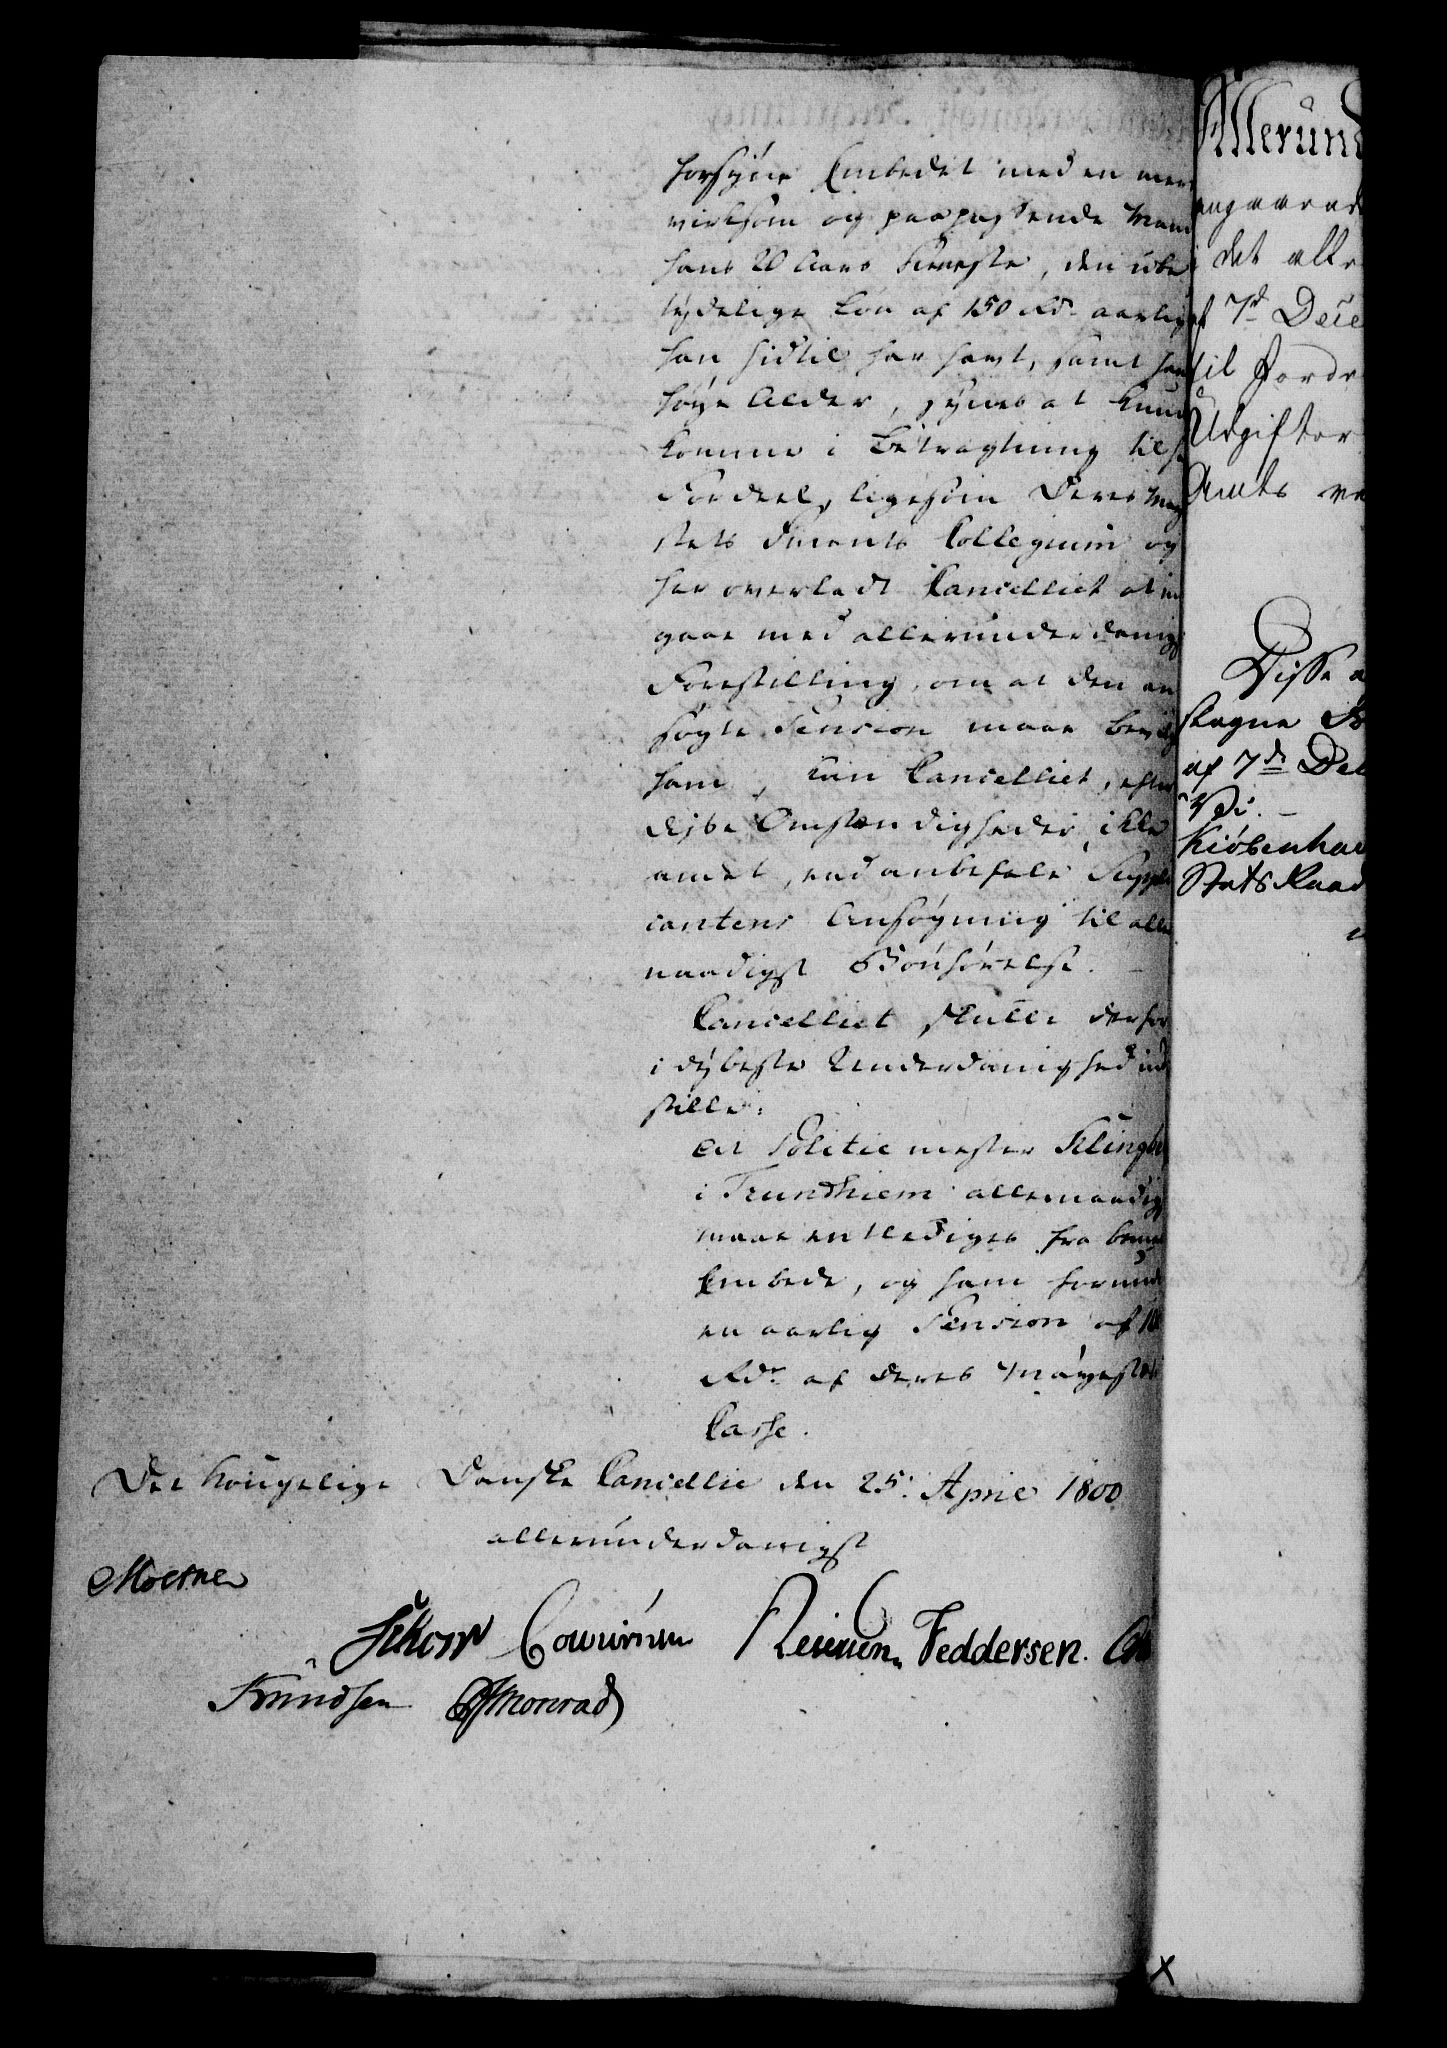 forsyne Embedet med en mere
virksom og paapassende Mand
hans 20 Aars Tieneste, den ube
tydelige Løn af 150 Rdr aarlig
han hidtil har havt, samt hans
høye Alder, synes at kunde
komme i Betragtning til
Fordeel, ligesom Deres Maj
stets Finants Collegium og
har overladt Cancelliet at ind
gaae med allerunderdanigst
Forestilling, om at den an
søgte Pension maae bevilges
ham, kan Cancelliet, efter
disse Omstændigheder, ikke
andet, end anbefale Suppli
cantens Ansøgning til aller
naadigst Bønhørelse.
Cancelliet skulle derfor
i dybeste Underdanighed ind
stille:
at Politiemester Klingberg
i Trundhiem allernaadigst
maae entlediges fra bem
Embede, og ham forundes
en aarlig Pension af
Rdr af Deres Majestets
Casse.
Det Kongelige Danske Cancellie den 25. April 1800
allerunderdanigst
Moltke
Cowurnum Feddersen.
Knudsen Monrad
Allerund
angaaende
i det alle
af 7d Dece
til Forde
Udgifter
Amts
Disse
stegne
af 7de Dec
Vi.
Kiøbenhav
Stats Raad
x